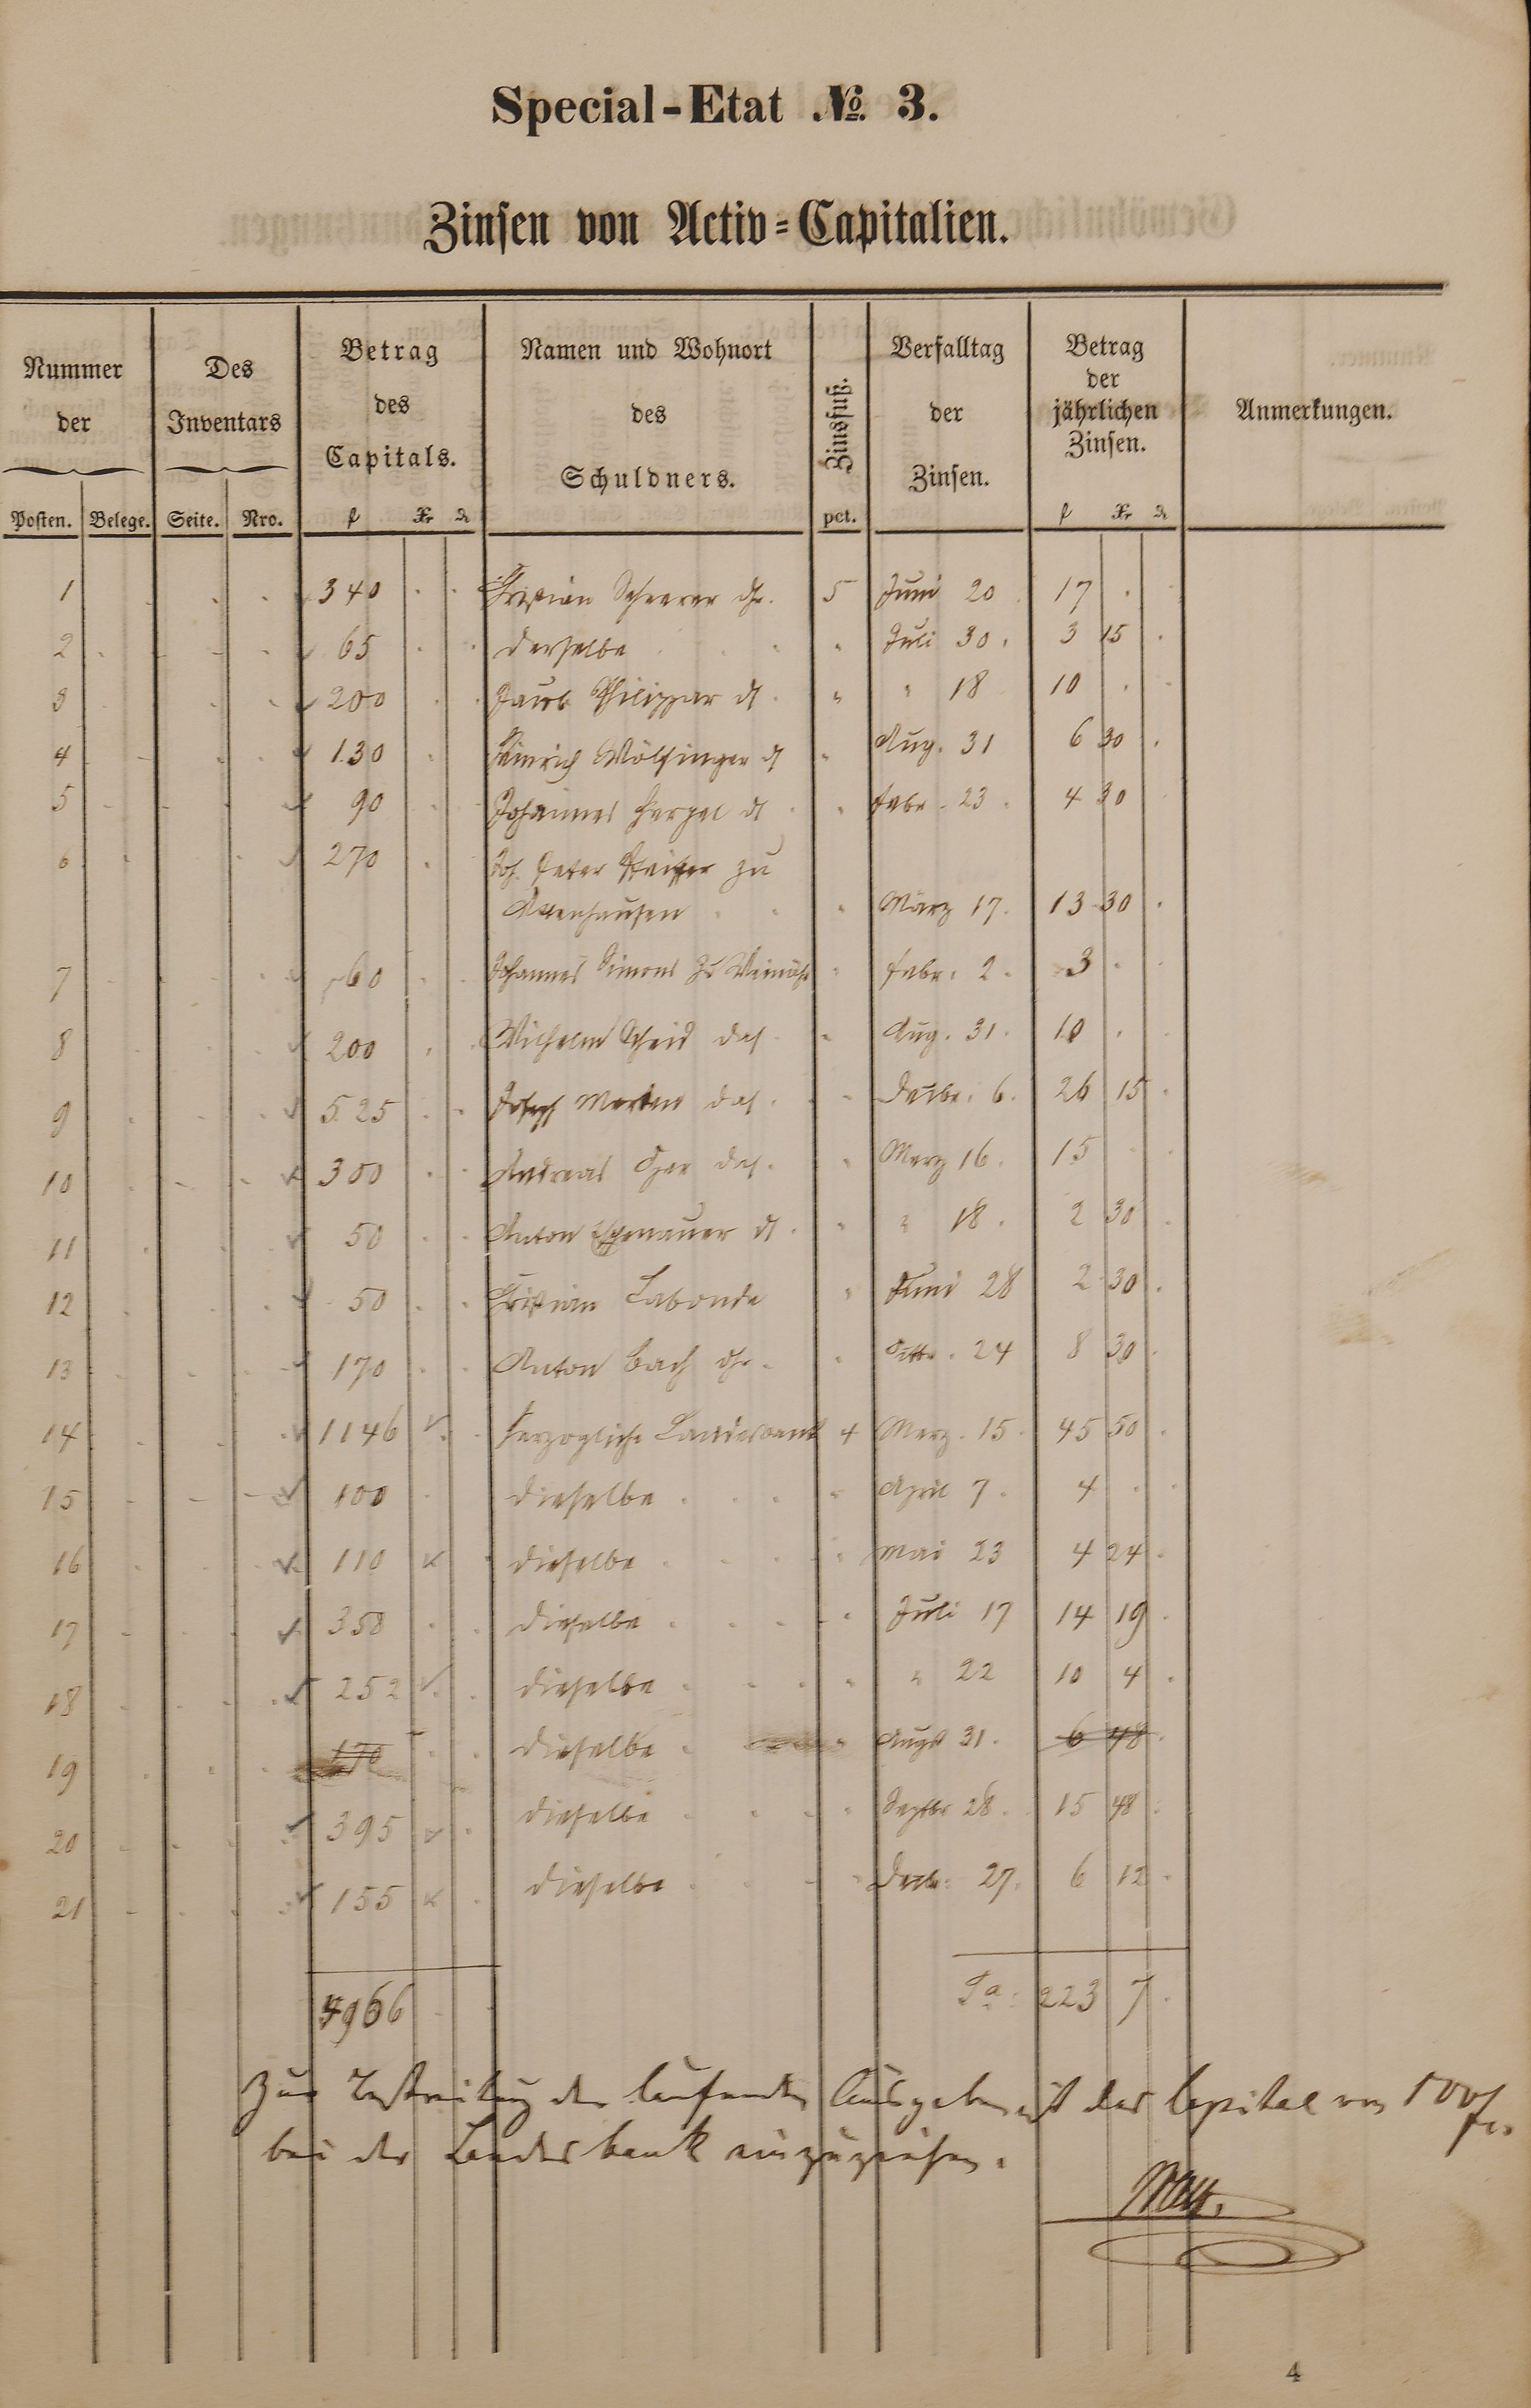 Special-Etat No. 3.
Zinsen von Activ-Capitalien.
Nummer der Des Inventars Betrag des Capitals. Namen und Wohnort des Schuldners. Zinsfuß. Verfalltag der Zinsen. Betrag der jährlichen Zinsen. Anmerkungen.
Posten. Belege. Seite. Nro. f Xr pct. f Xr
1 340 Cristian Scheerer 5 Juni 20 17
2 65 derselbe " Juli 30. 3 15
3 200 Jacob " " 18 10
4 130 Heinrich Wölfinger " Aug. 31 6 30
5 90 Johannes " Febr. 23 4 30
6 270 Joh. Peter zu
Attenhausen " März 17. 13 30
7 60 Johannes Simons zu Weinähr " Febr. 2. 3
8 200 Wilhelm Scheid das. " Aug. 31. 10
9 525 Joseph das. " Decbr. 6. 26 15
10 300 Andreas das. " Merz 16. 15
11 50 Anton " " 18. 2 30
12 50 Cristian Labonde " Juni 28 2 30
13 170 Anton Bach " 24 8 30
14 1146 Herzogliche Landesbank 4 Merz. 15. 45 50
15 100 dieselbe " April 7. 4
16 110 dieselbe " Mai 23 4 24
17 358 dieselbe " Juli 17 14 19
18 252 dieselbe " " 22 10 4
19 170 dieselbe " Augst 31. 6 48
20 395 dieselbe " Septbr 28. 15 48
21 155 dieselbe " Decbr. 27. 6 12
4966 Sa: 223 7
Zur Bestreitung der laufenden Ausgaben ist das Capital von 100 f
bei der Landesbank einzuziehen.
4